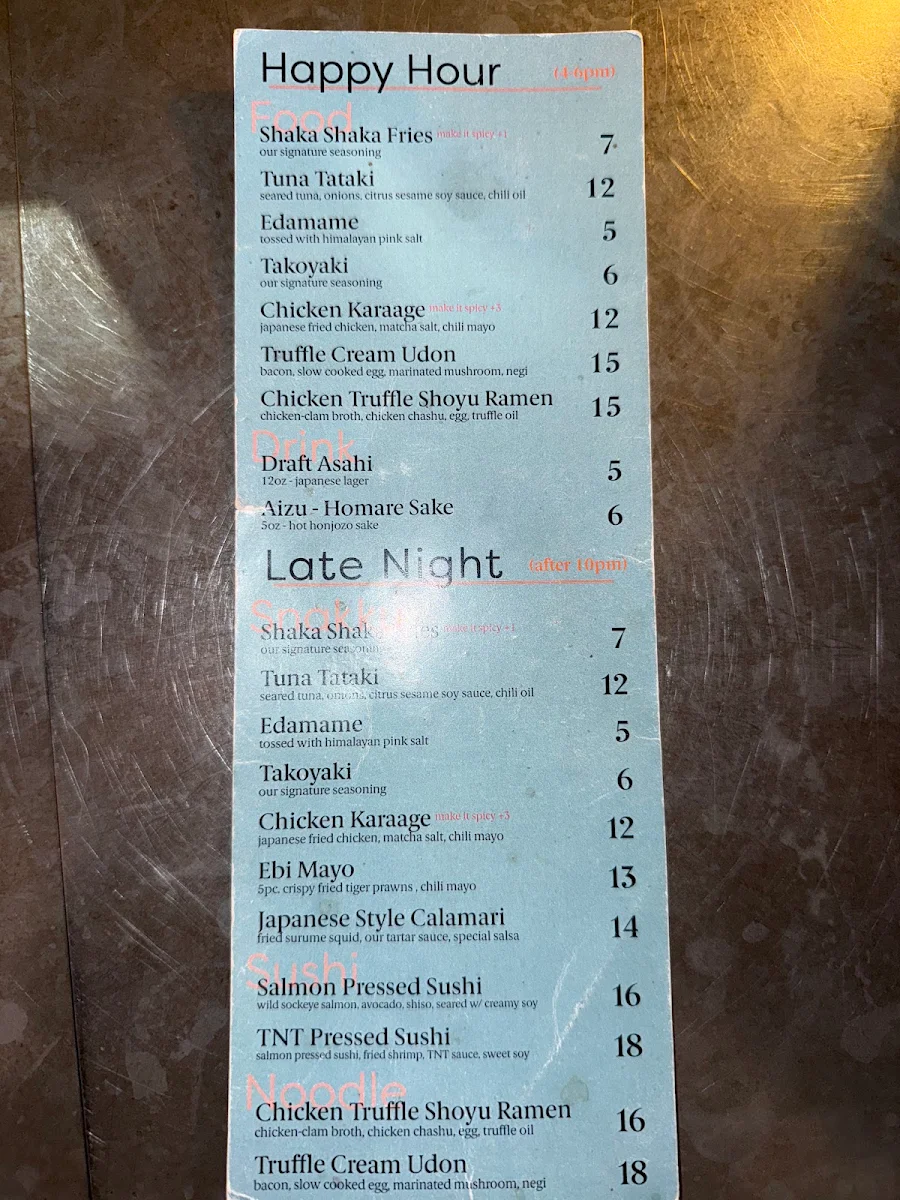 Happy Hour (4-6pm)
Food
Shaka Shaka Fries make it spicy +1 7
our signature seasoning
Tuna Tataki 12
seared tuna, onions, citrus sesame soy sauce, chili oil
Edamame 5
tossed with himalayan pink salt
Takoyaki 6
our signature seasoning
Chicken Karaage make it spicy +3 12
japanese fried chicken, matcha salt, chili mayo
Truffle Cream Udon 15
bacon, slow cooked egg, marinated mushroom, negi
Chicken Truffle Shoyu Ramen 15
chicken-clam broth, chicken chashu, egg, truffle oil
Drink
Draft Asahi 5
12oz - japanese lager
Aizu - Homare Sake 6
5oz - hot honjozo sake
Late Night (after 10pm)
Shaka Shaka Fries make it spicy +1 7
our signature seasoning
Tuna Tataki 12
seared tuna, onions, citrus sesame soy sauce, chili oil
Edamame 5
tossed with himalayan pink salt
Takoyaki 6
our signature seasoning
Chicken Karaage make it spicy +3 12
japanese fried chicken, matcha salt, chili mayo
Ebi Mayo 13
5pc. crispy fried tiger prawns , chili mayo
Japanese Style Calamari 14
fried surume squid, our tartar sauce, special salsa
Sushi
Salmon Pressed Sushi 16
wild sockeye salmon, avocado, shiso, seared w/ creamy soy
TNT Pressed Sushi 18
salmon pressed sushi, fried shrimp, TNT sauce, sweet soy
Noodle
Chicken Truffle Shoyu Ramen 16
chicken-clam broth, chicken chashu, egg, truffle oil
Truffle Cream Udon 18
bacon, slow cooked egg, marinated mushroom, negi